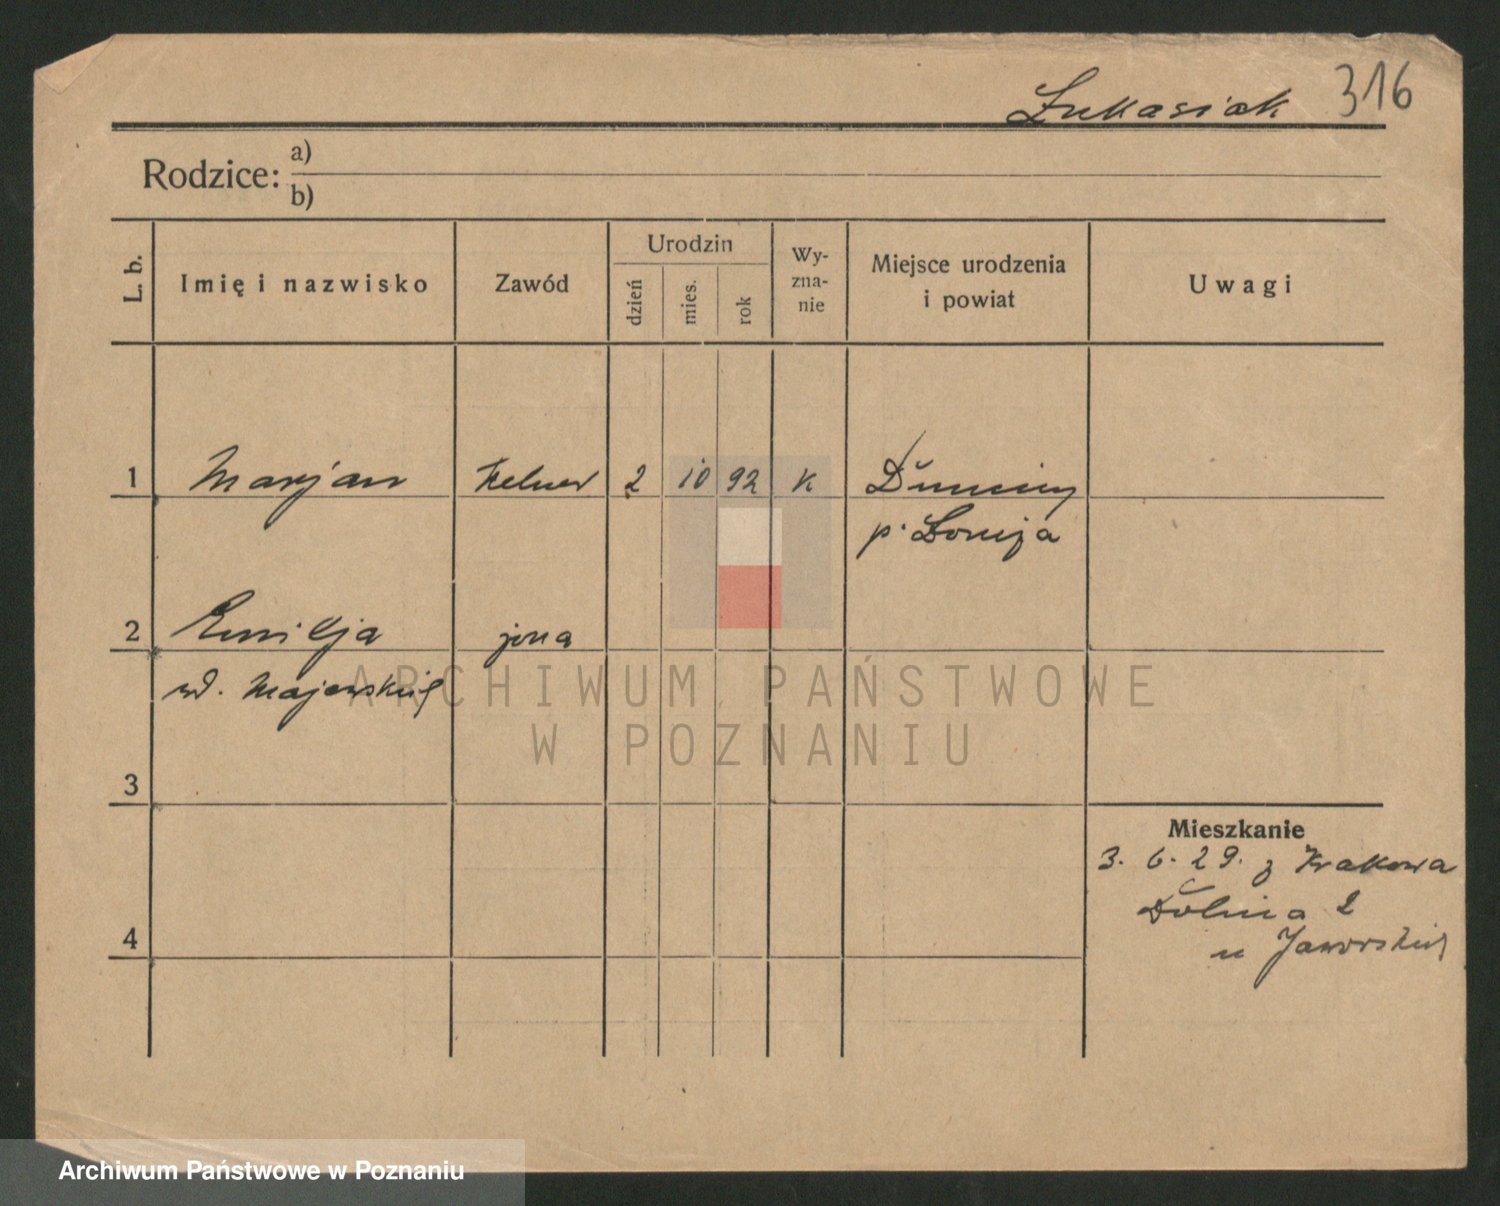 Łukasiak 316
Rodzice: a)
b)
L. b.
Imię i nazwisko
Zawód
Urodzin
dzień
mies.
rok
Wy-
zna-
nie
Miejsce urodzenia
i powiat
Uwagi
1 Marjan Kelner 2 10 92 K
p. Łomża
2 Emilja żona
Majewskich
ARCHIWUM PAŃSTWOWE
W POZNANIU
3
Mieszkanie
3. 6. 29. z Krakowa
Dolina 2
u Jaworskich
4
Archiwum Państwowe w Poznaniu